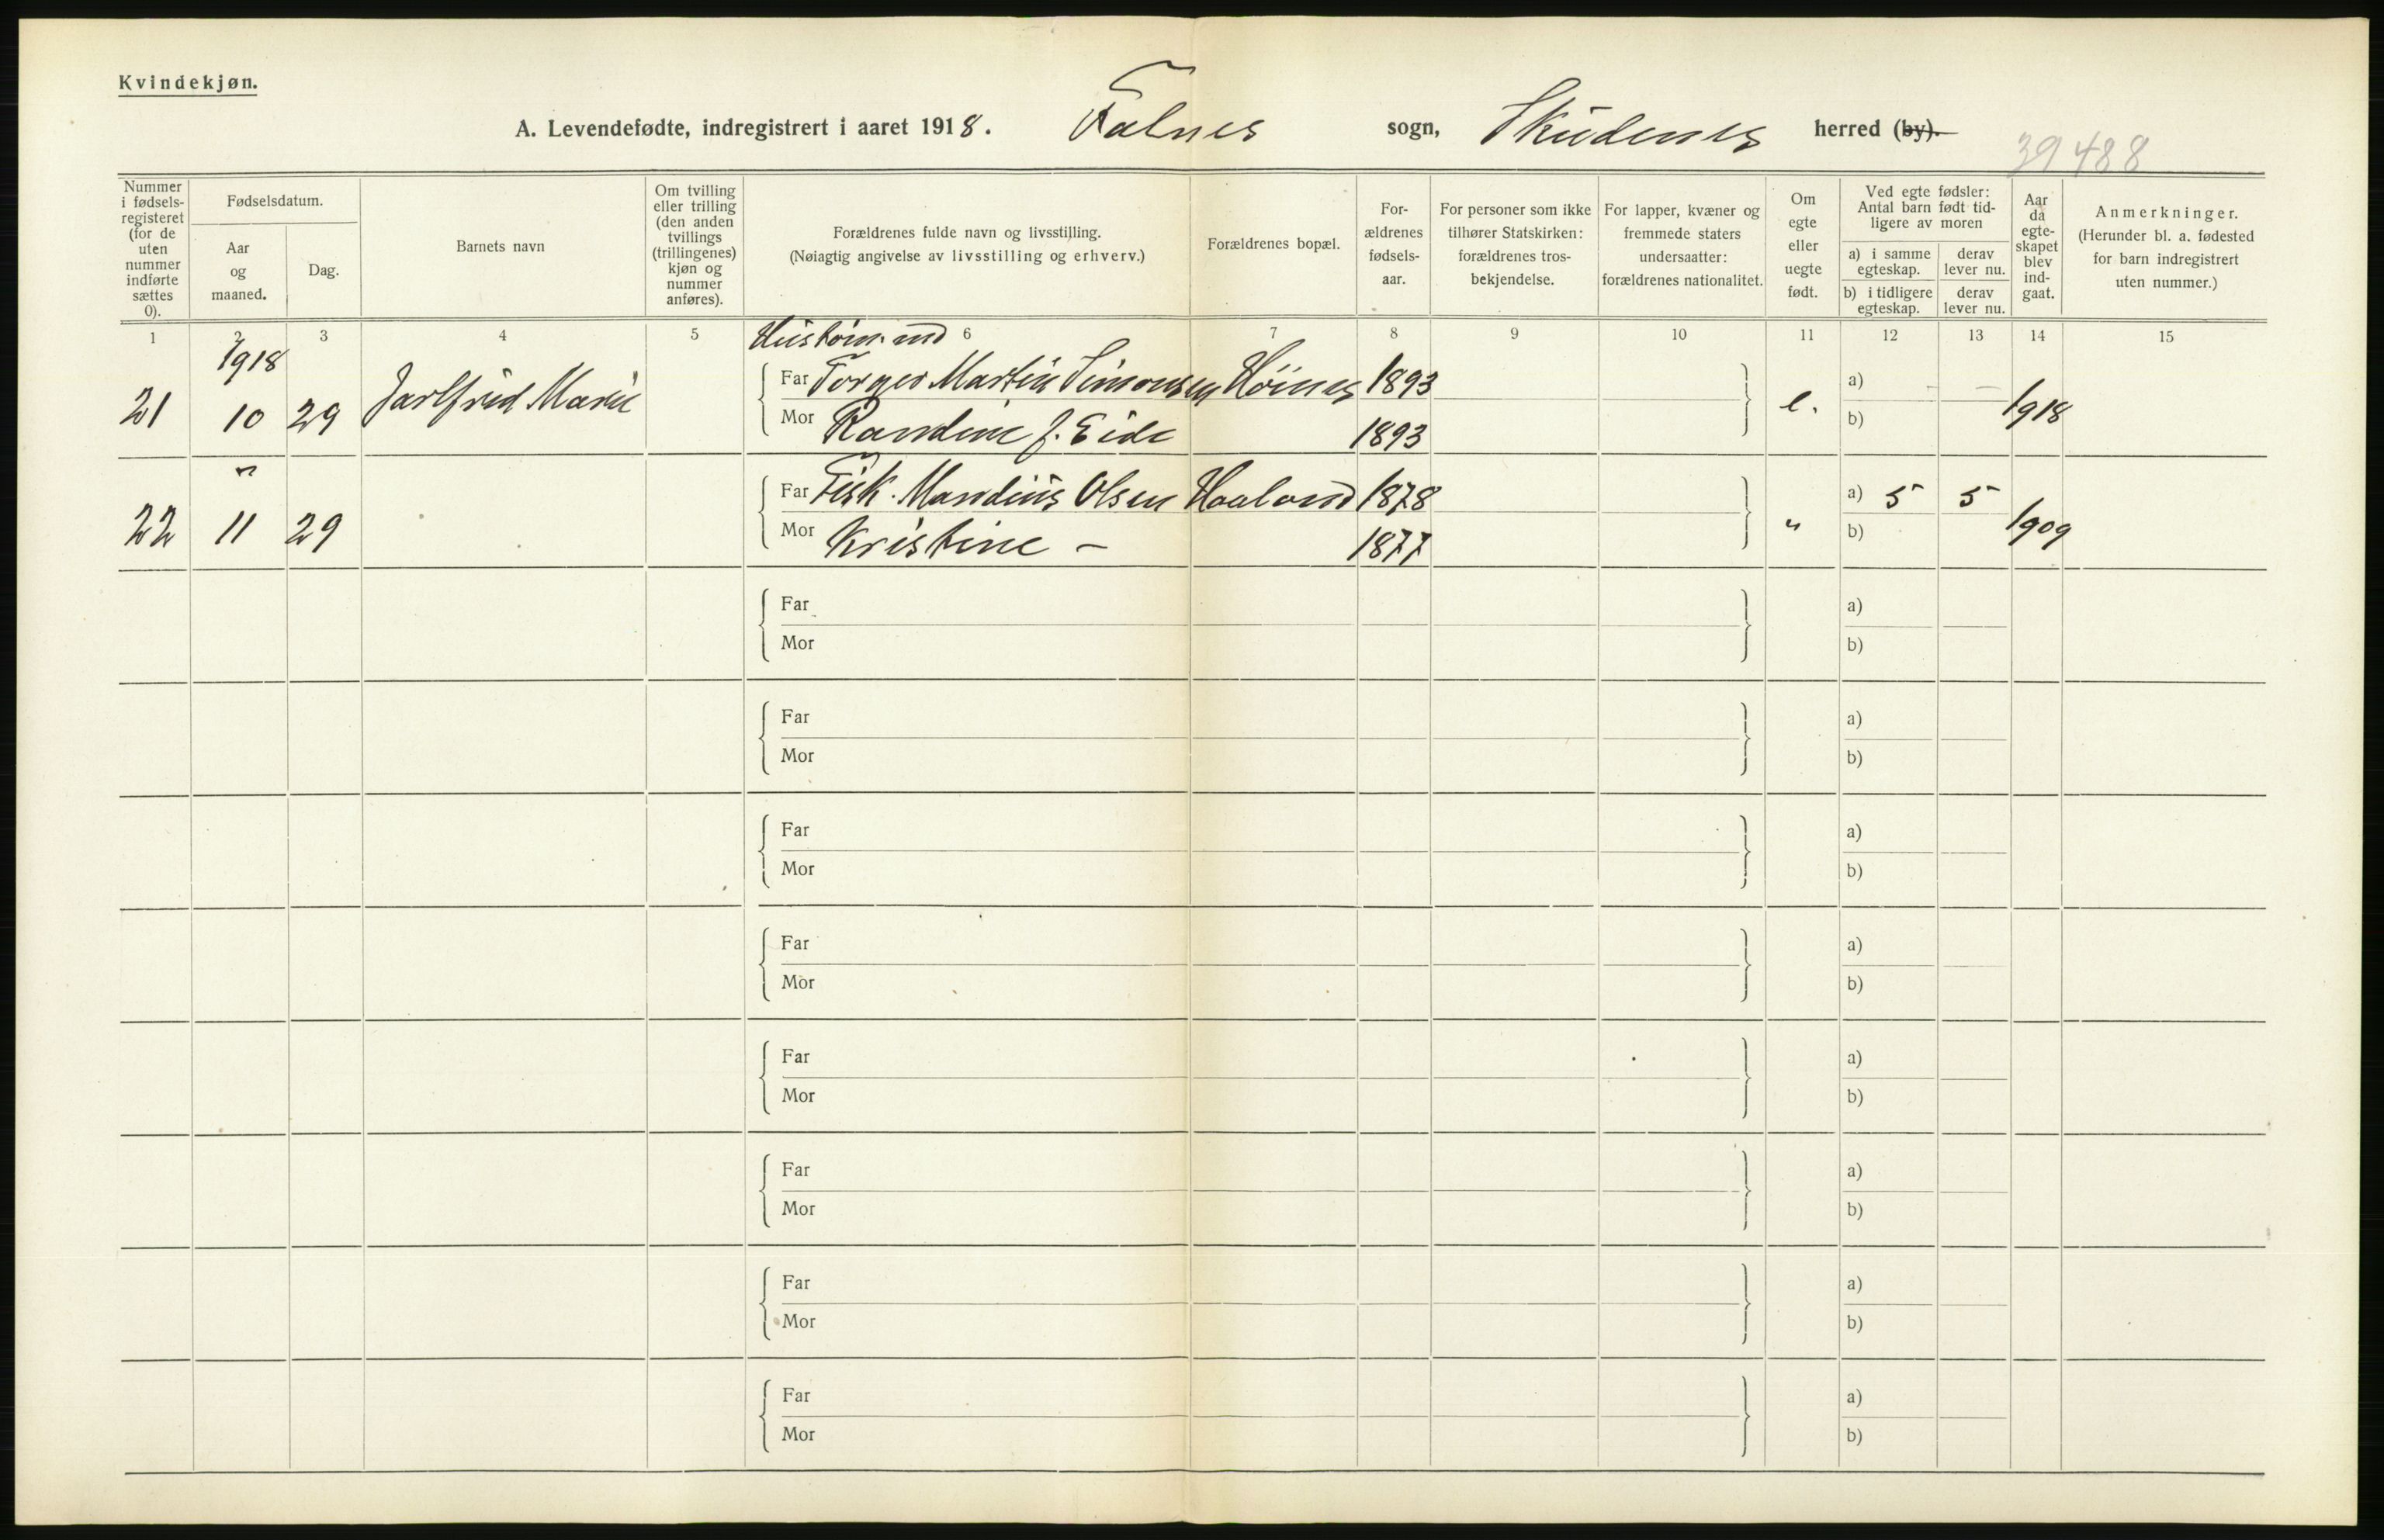 Kvindekjøn.
A. Levendefødte, indregistrert i aaret 1918. Falnes sogn, Skudenes herred (by).
39488
Nummer i fødsels-registeret (for de uten nummer indførte sættes 0).
Fødselsdatum.
Aar og maaned.
Dag.
Barnets navn
Om tvilling eller trilling (den anden tvillings (trillingenes) kjøn og nummer anføres).
Forældrenes fulde navn og livsstilling.
(Nøiagtig angivelse av livsstilling og erhverv.)
Forældrenes bopæl.
For-ældrenes fødsels-aar.
For personer som ikke tilhører Statskirken: forældrenes tros-bekjendelse.
For lapper, kvæner og fremmede staters undersaatter: forældrenes nationalitet.
Om egte eller uegte født.
Ved egte fødsler: Antal barn født tid-ligere av moren
a) i samme egteskap. derav lever nu.
b) i tidligere egteskap. derav lever nu.
Aar da egte-skapet blev ind-gaat.
Anmerkninger.
(Herunder bl. a. fødested for barn indregistrert uten nummer.)
1 2 3 4 5 6 7 8 9 10 11 12 13 14 15
1918 Hustøm.md
21 10 29 Jarlfrid Marie Far Torger Martin Simonsen Høines 1893 e. a) - - 1918
Mor Randine f. Eide 1893 b)
"
22 11 29 Far Fisk. Mandius Olsen Haaland 1878 " a) 5 5 1909
Mor Kristine - 1877 b)
Far a)
Mor b)
Far a)
Mor b)
Far a)
Mor b)
Far a)
Mor b)
Far a)
Mor b)
Far a)
Mor b)
Far a)
Mor b)
Far a)
Mor b)